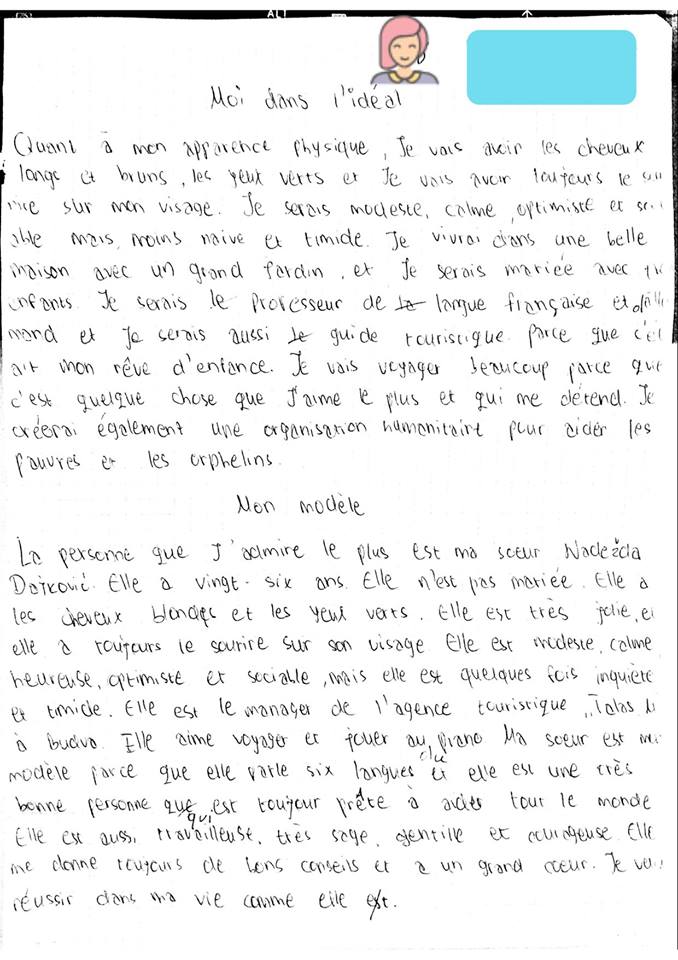 Moi dans l'idéal
Quant à mon apparence physique, Je vais avoir les cheveux
longs et bruns, les yeux verts et Je vais avoir toujours le sou
rire sur mon visage. Je serais modeste, calme, optimiste et soci
able mais, moins naive et timide. Je vivrai dans une belle
maison avec un grand jardin, et Je serais mariée avec
enfants. Je serais le professeur de la langue française et d'alle
mand et Je serais aussi le guide touristique parce que c'ét
ait mon rêve d'enfance. Je vais voyager beaucoup parce que
c'est quelque chose que J'aime le plus et qui me détend. Je
créerai également une organisation humanitaire pour aider les
pauvres et les orphelins.
Mon modèle
La personne que J'admire le plus est ma sœur Nadežda
Elle a vingt-six ans. Elle n'est pas mariée. Elle a
les cheveux blondes et les yeux verts. Elle est très jolie, et
elle a toujours le sourire sur son visage Elle est modeste, calme
heureuse, optimiste et sociable, mais elle est quelques fois inquiète
et timide. Elle est le manager de l'agence touristique „Talas
à Budva. Elle aime voyager et jouer au piano Ma sœur est
modèle parce que elle parle six langues et elle est une très
bonne personne que qui est toujour prête à aider tout le monde
Elle est aussi travailleuse, très sage, gentille et courageuse. Elle
me donne toujours de bons conseils et a un grand cœur. Je
réussir dans ma vie comme elle est.